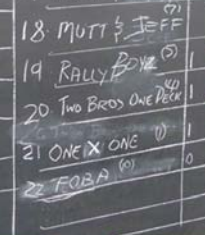 18. MUTT & JEFF (7) 1
19 RALLY BOYZ (5) 1
20. TWO BROS ONE DECK (4) 1
21 ONE X ONE (1) 1
22 FOBA (0) 0